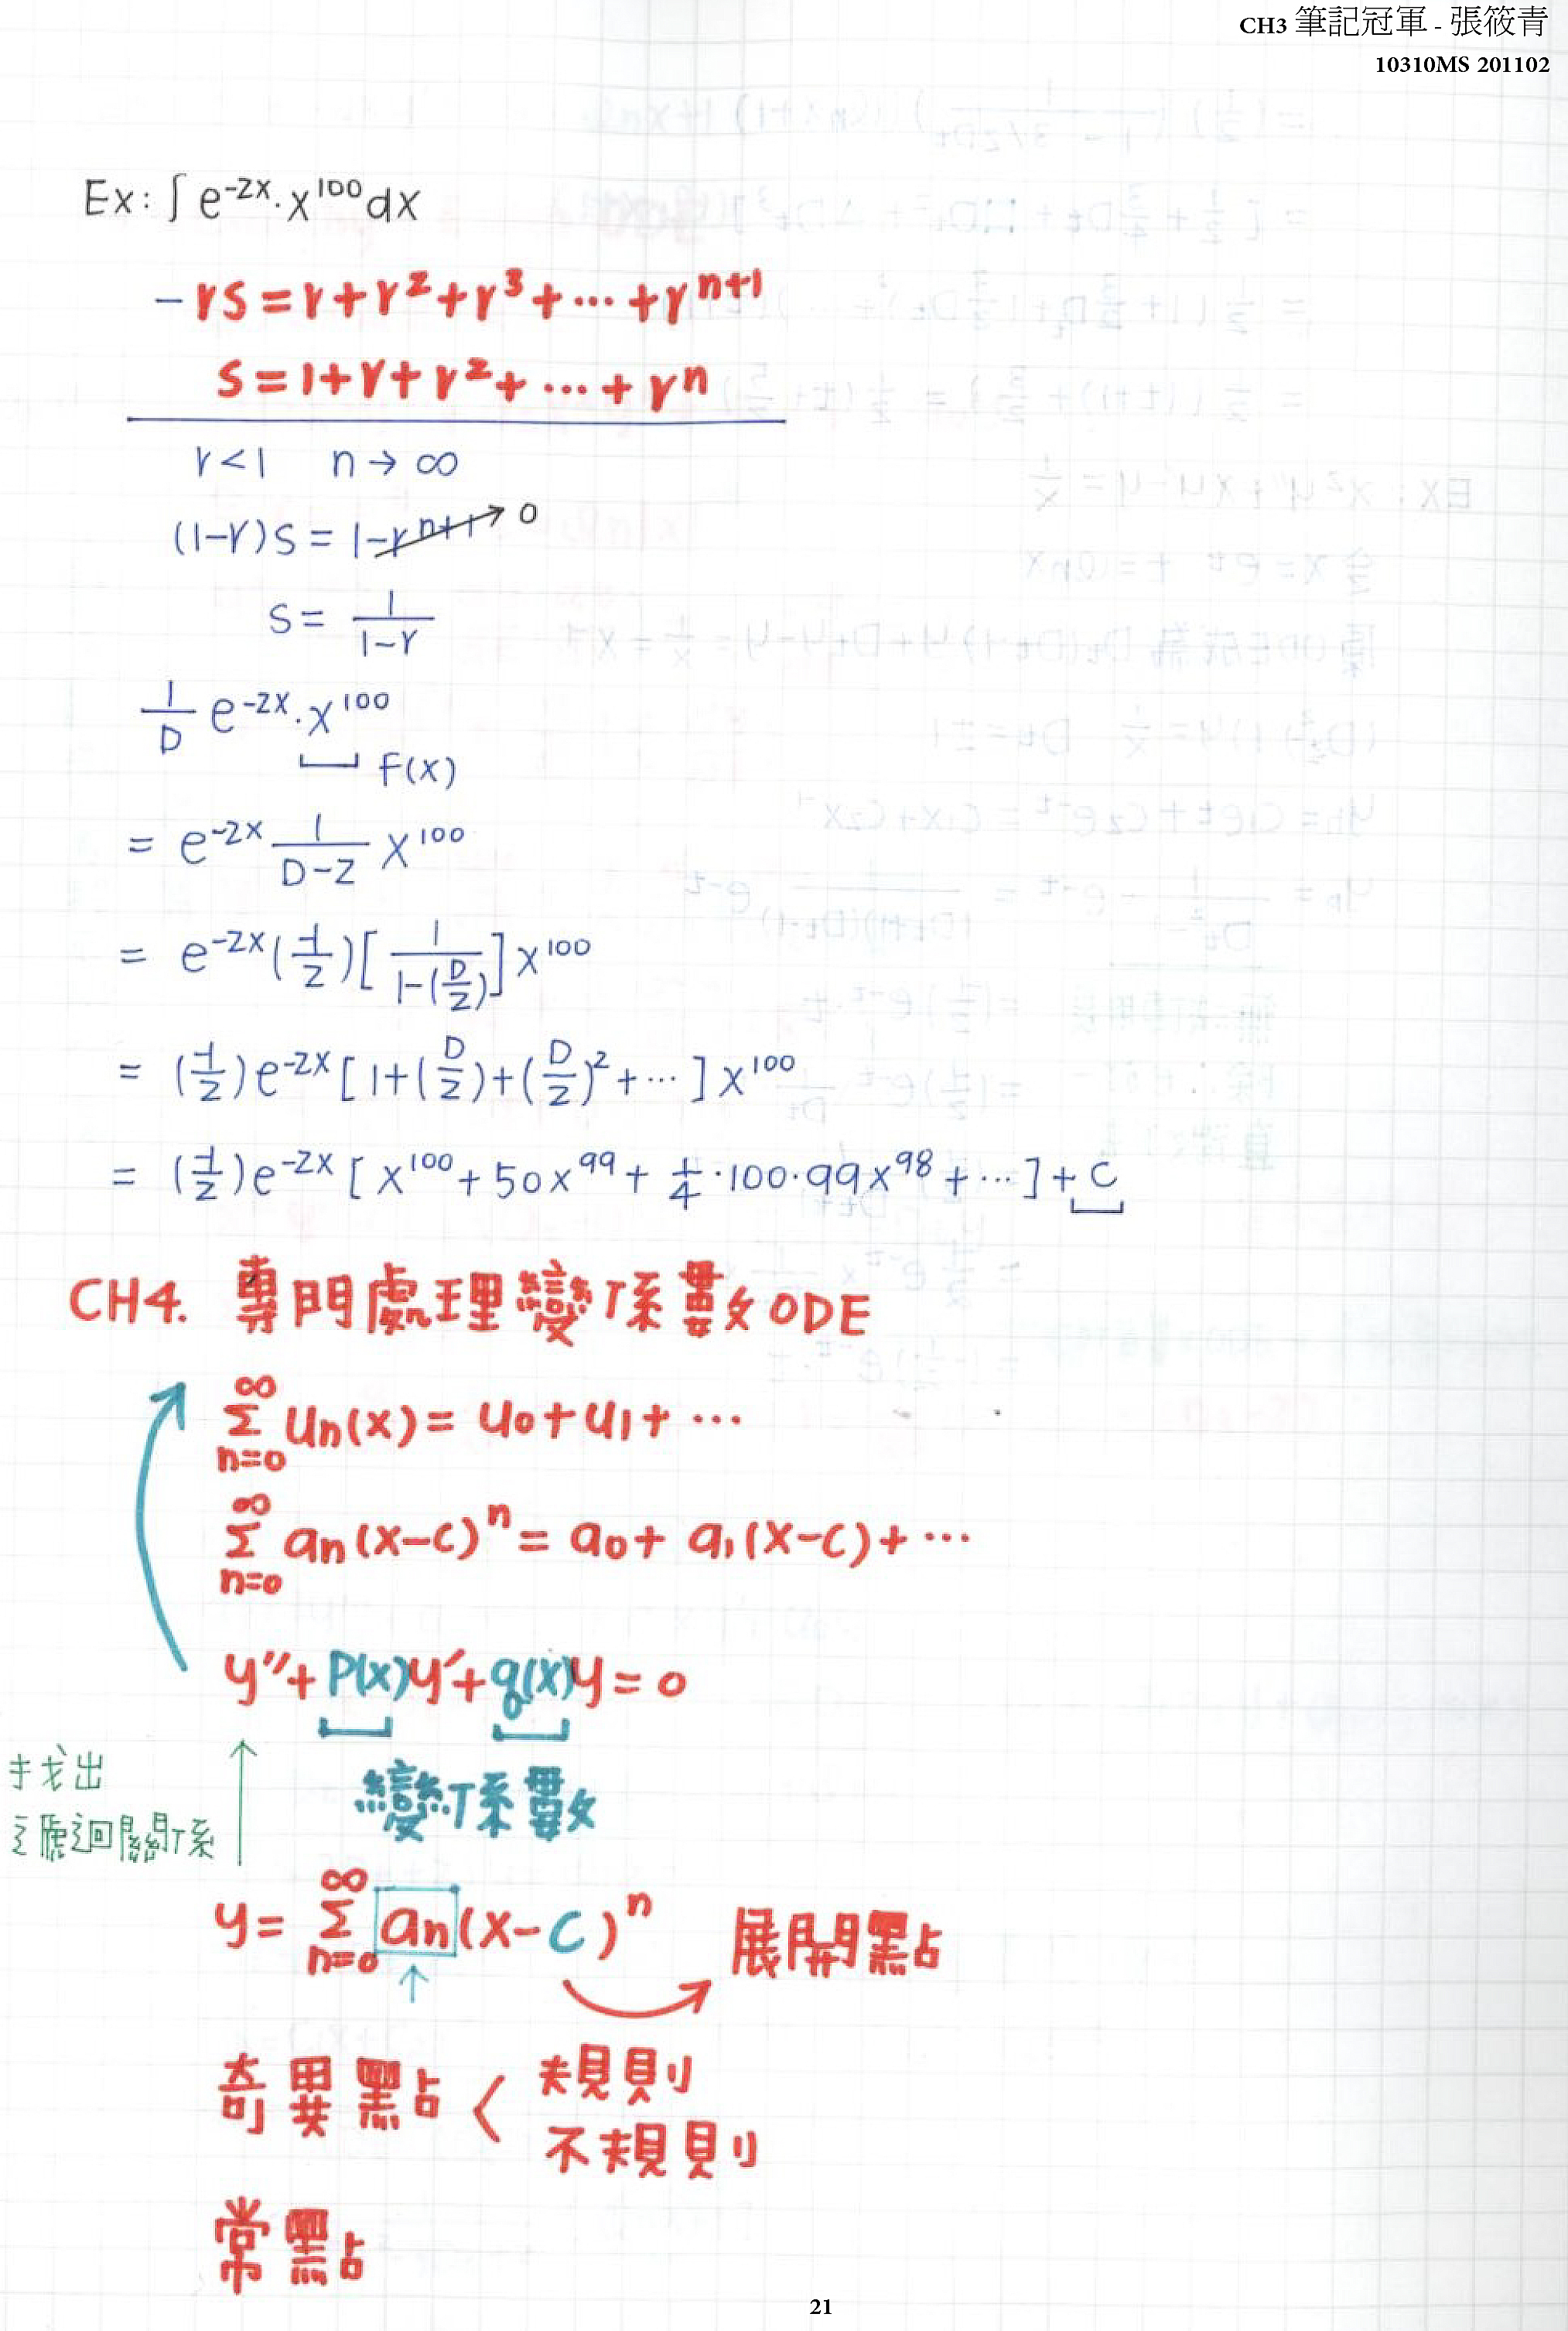 CH3 筆記冠軍 - 張筱青
10310MS 201102
Ex: ∫ e^{-2x}·x^{100} dx
- rs = r + r² + r³ + ··· + r^{n+1}
s = 1 + r + r² + ··· + r^n
r < 1 n → ∞
(1-r)s = 1 - r^{n+1} → 0
s = 1/(1-r)
1/D e^{-2x}·x^{100}
F(x)
= e^{-2x} 1/(D-2) x^{100}
= e^{-2x} (-1/2) [1/(1-(D/2))] x^{100}
= (-1/2) e^{-2x} [1 + (D/2) + (D/2)² + ···] x^{100}
= (-1/2) e^{-2x} [x^{100} + 50x^{99} + 1/4·100·99x^{98} + ···] + C
CH4. 專門處理變係數ODE
∑_{n=0}^{∞} u_n(x) = u_0 + u_1 + ···
∑_{n=0}^{∞} a_n(x-c)^n = a_0 + a_1(x-c) + ···
y'' + P(x)y' + q(x)y = 0
變係數
找出
遞迴關係
y = ∑_{n=0}^{∞} a_n(x-c)^n 展開點
奇異點 < 規則
不規則
常點
21